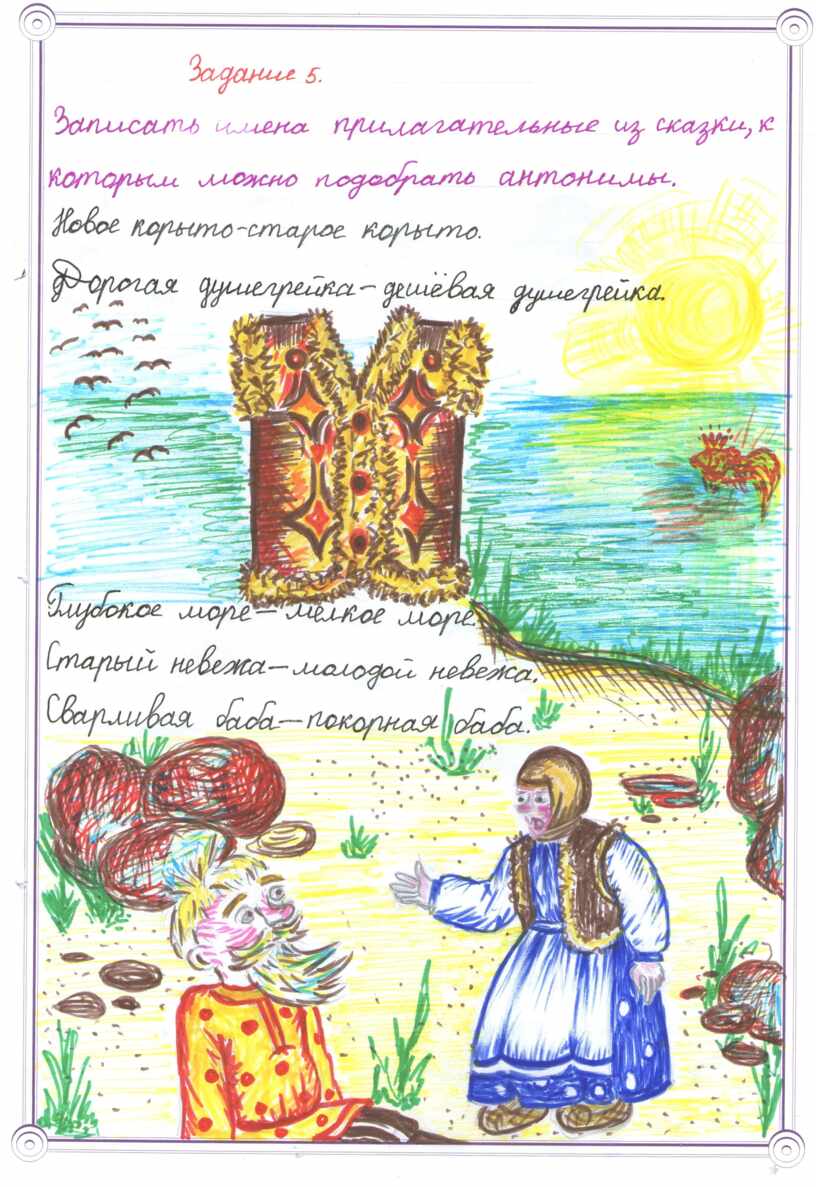 Задание 5.
Записать имена прилагательные из сказки, к
которым можно подобрать антонимы.
Новое корыто-старое корыто.
Дорогая душегрейка-дешёвая душегрейка.
Глубокое море-мелкое море.
Старый невежа-молодой невежа.
Сварливая баба-покорная баба.